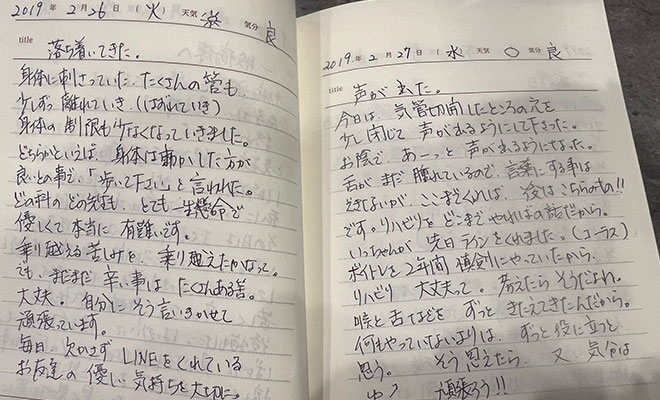 2019年 2月 26日 (火) 天気 気分 良
title 落ち着いてきた。
身体に刺さっていた、たくさんの管も
少しずつ離れていき、(はずれていき)
身体の制限も少なくなっていきました。
どちらかといえば、身体は動かした方が
良いとの事で、「歩いて下さい」と言われた。
どの科のどの先生も とても一生懸命で
優しくて本当に有難いです。
乗り越える苦しみを 乗り越えたかなって。
でも、まだまだ辛い事は たくさんある筈。
大丈夫。自分にそう言いきかせて
頑張っています。
毎日、欠かさず LINEをくれている
お友達の優しい気持ちを大切に。
2019年 2月 27日 (水) 天気 ○ 気分 良
title 声が出た。
今日は、気管切開したところの穴を
少し閉じて 声が出るようにして下さった。
お陰で、あーっと 声が出るようになった。
舌がまだ腫れているので、言葉にする事は
できないが、ここまでくれば、後はこちらのもの!!
です。リハビリを どこまでやれるかの話だから。
いっちゃんが 先日ラインをくれました。(コーラス)
ボイトレを2年間 真剣にやっていたから
リハビリ 大丈夫って。考えたらそうだよね。
喉と舌などを ずっときたえてきたんだから。
何もやっていないよりは、ずっと役に立つと
思う。 そう思えたら、又 気分は
頑張ろう!!